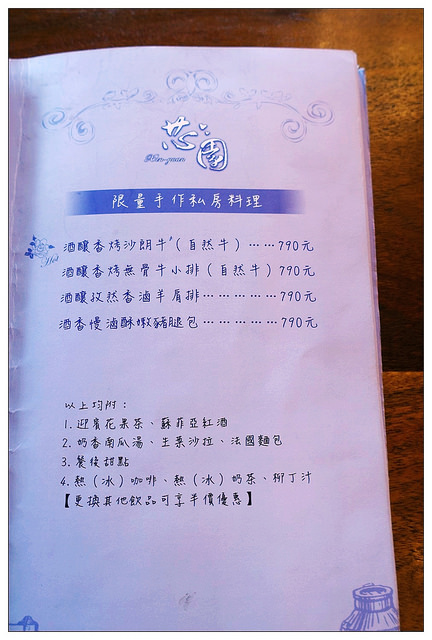 芯園
限量手作私房料理
酒釀香烤沙朗牛(自然牛)……790元
Hot
酒釀香烤無骨牛小排(自然牛)790元
酒釀孜然香滷羊肩排…………790元
酒香慢滷酥嫩豬腿包…………790元
以上均附：
1.迎賓花果茶、蘇菲亞紅酒
2.奶香南瓜湯、生菜沙拉、法國麵包
3.餐後甜點
4.熱(冰)咖啡、熱(冰)奶茶、柳丁汁
【更換其他飲品可享半價優惠】